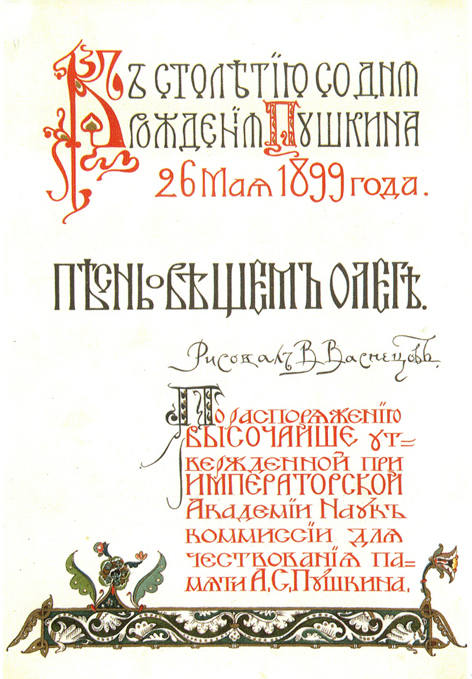 Къ столѣтію со дня
рожденія Пушкина
26 Мая 1899 года.
Пѣснь о вѣщемъ Олегѣ.
Рисовалъ В. Васнецовъ.
По распоряженію
ВЫСОЧАЙШЕ ут=
вержденной при
ИМПЕРАТОРСКОЙ
Академіи Наукъ
коммиссіи для
чествованія па=
мяти А.С.Пушкина.